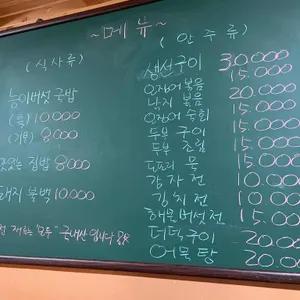 ~메뉴~
(식사류)
능이버섯 국밥
(특) 10.000
(기본) 8000
있는 집밥 8000
돼지 불백 10.000
재료는 "모두" 국내산 입니다
(안주류)
생선구이 30.000
15.000
오징어 볶음 20.000
낙지 볶음 15.000
오징어 숙회 15.000
두부 구이 15.000
두부 조림 15.000
도토리 묵 15.000
감자전 10.000
김치전 10.000
해물버섯전 15.000
더덕구이 20.000
어묵탕 20.000